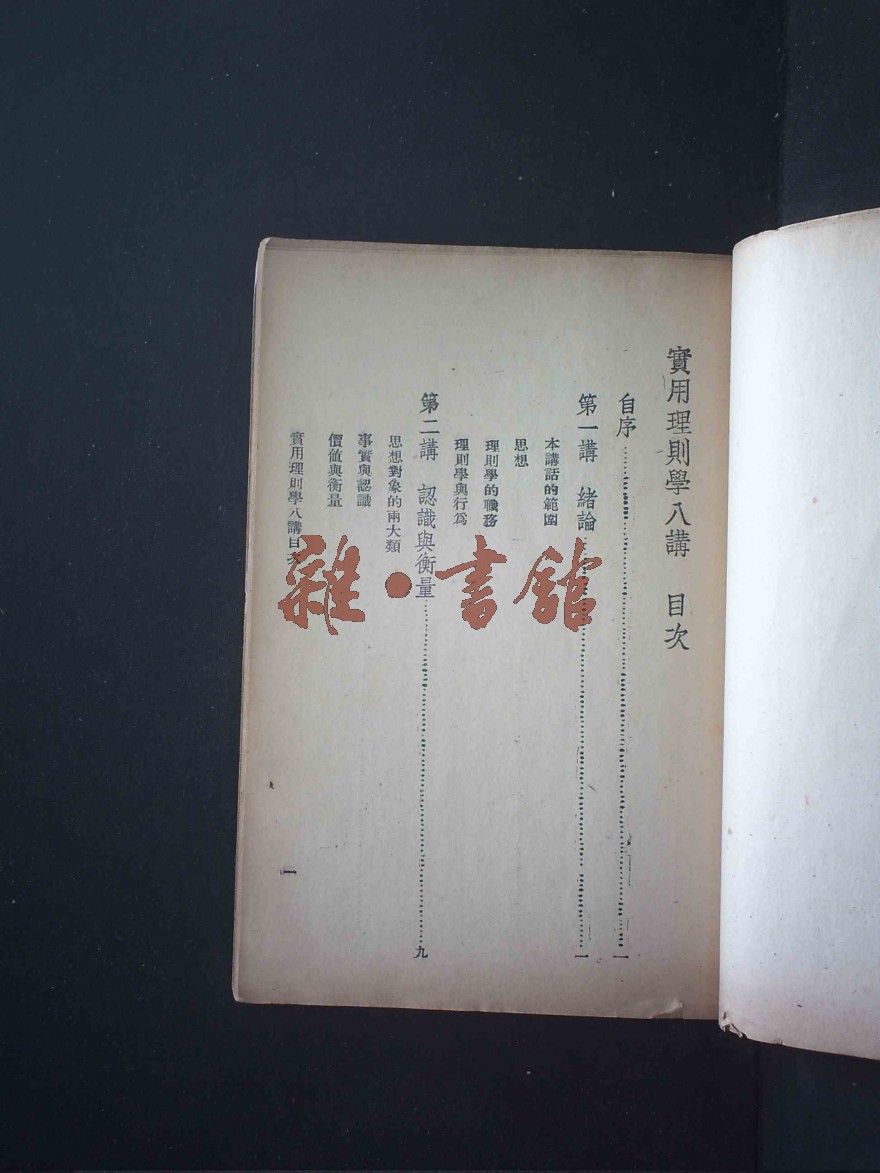 實用理則學八講　目次
自序……………………一
第一講　緒論……………………一
本講話的範圍
思想
理則學的職務
理則學與行爲
第二講　認識與衡量……………………九
思想對象的兩大類
事實與認識
價值與衡量
實用理則學八講目次
一
雜·書館